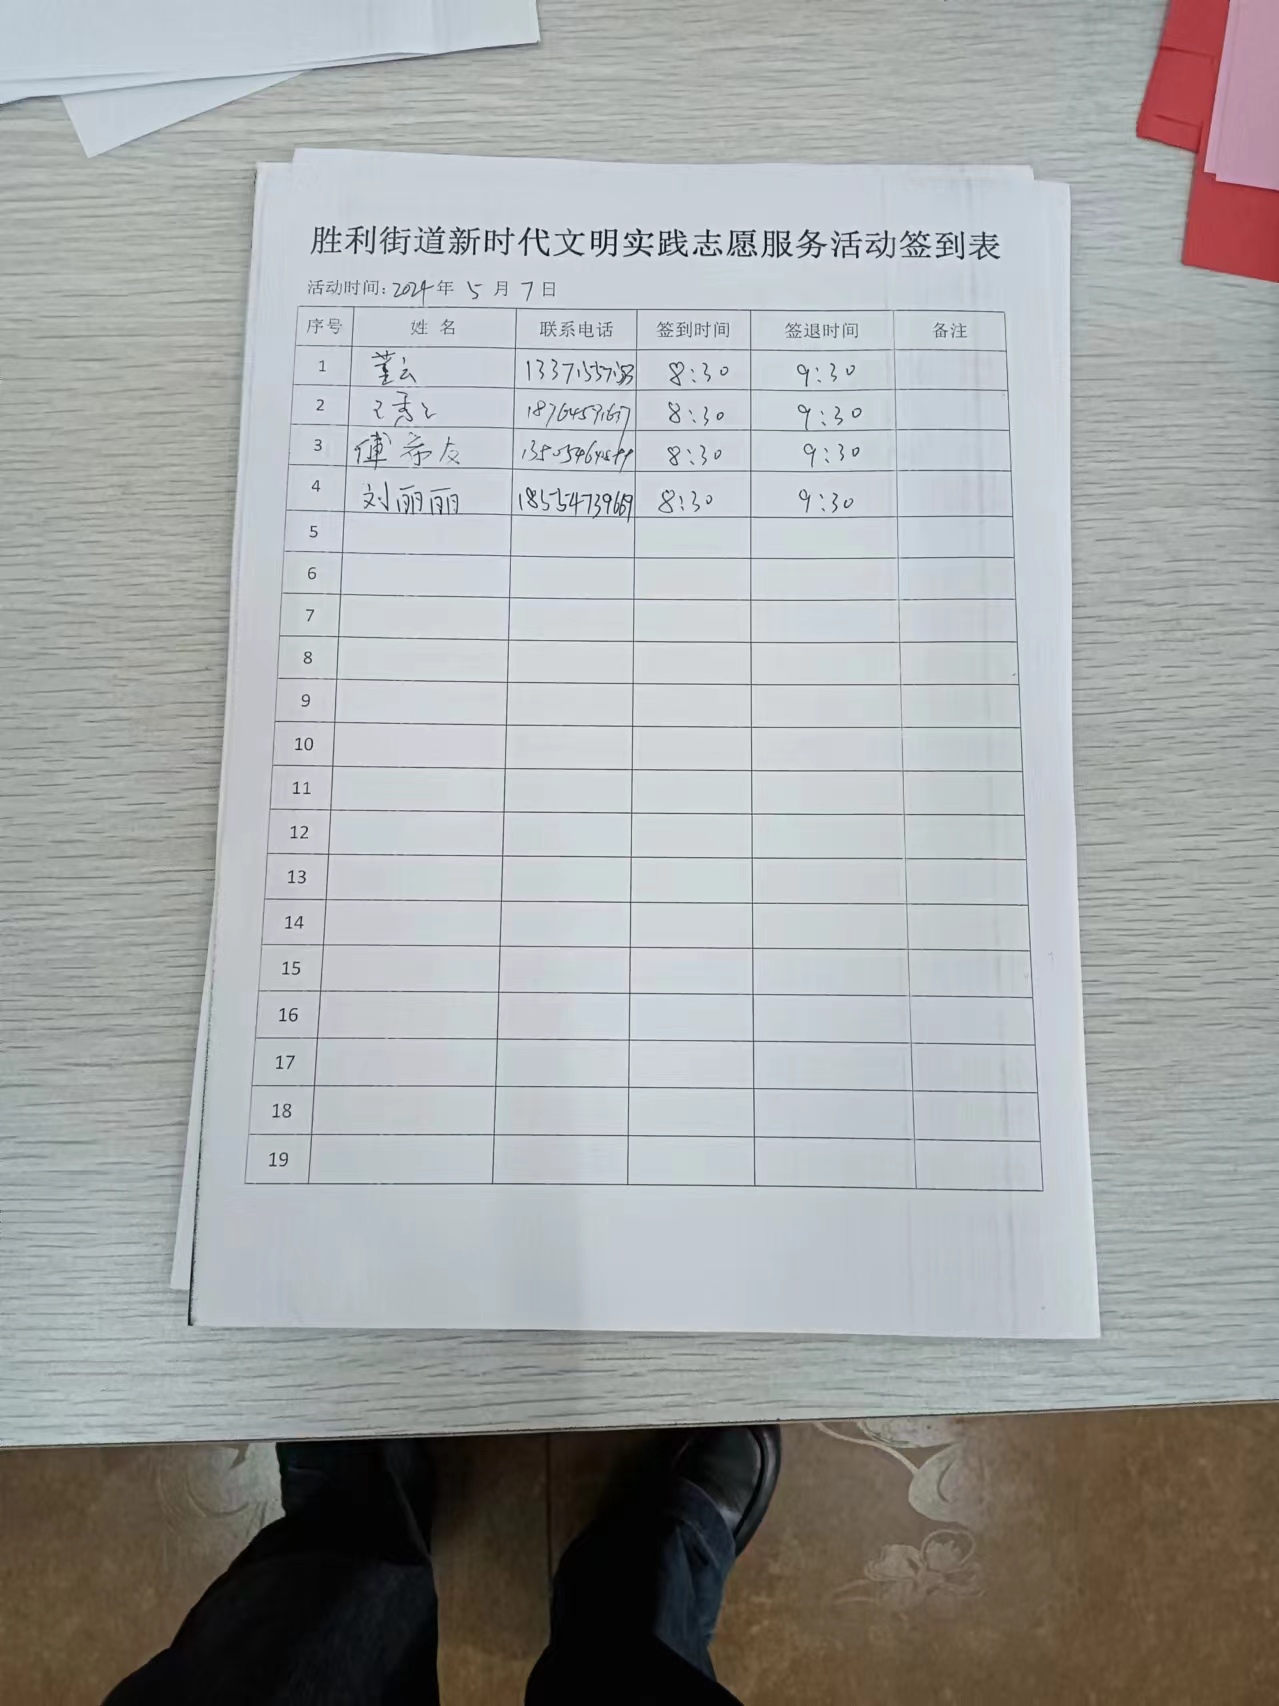 胜利街道新时代文明实践志愿服务活动签到表
活动时间: 2024年 5 月 7 日
序号 姓 名 联系电话 签到时间 签退时间 备注
1 董云 8:30 9:30
2 8:30 9:30
3 傅希友 8:30 9:30
4 刘丽丽 18554739669 8:30 9:30
5
6
7
8
9
10
11
12
13
14
15
16
17
18
19